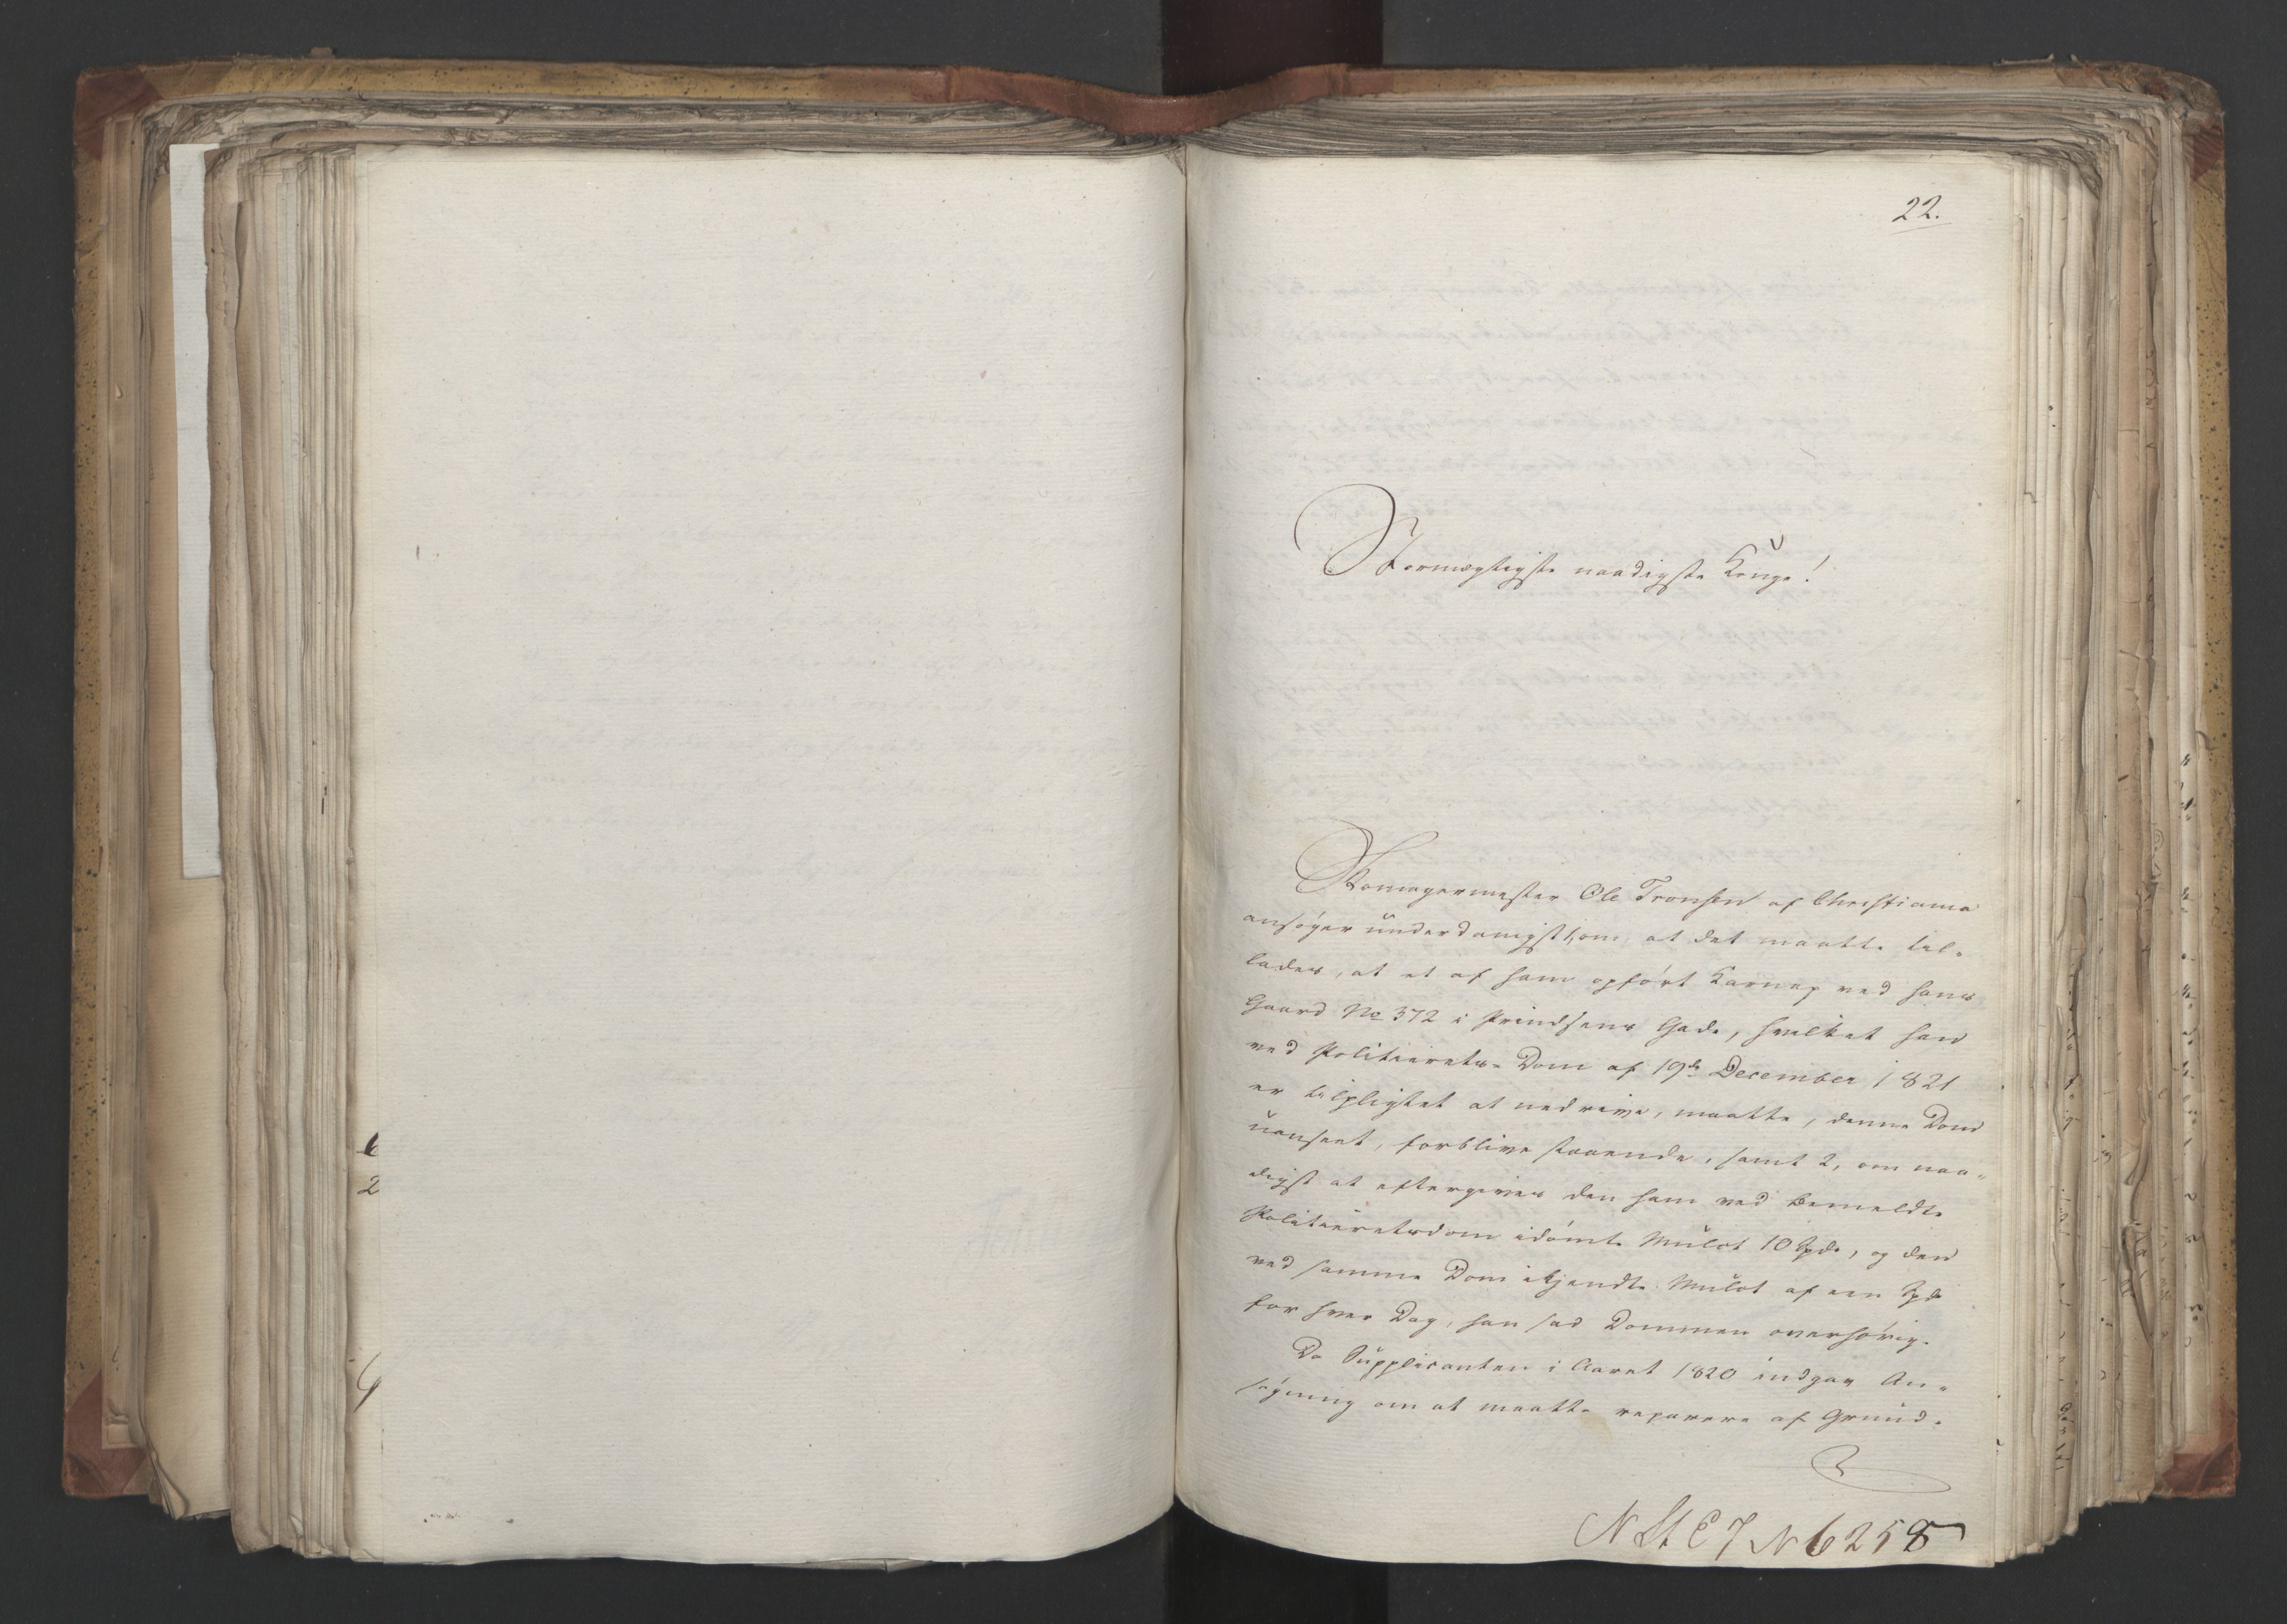 22.
Stormægtigste naadigste Konge!
Skomagermester Ole Tronsen af Christiania
ansøger underdanigst 1, om, at det maatte til-
lades, at et af ham opført Karnap ved hans
Gaard No 372 i Prindsens Gade, hvilket han
ved Politierets-Dom af 19de December 1821
er tilpligtet at nedrive, maatte, denne Dom
uanseet, forblive staaende, samt 2, om naa-
digst at eftergives den ham ved bemeldte
Politieretsdom idømte Mulct 10 Spd., og den
ved samme Dom ikjendte Mulct af een Spd
for hver Dag, han sad Dommen overhørig.
Da Supplicanten i Aaret 1820 indgav An-
søgning om at maatte reparere af Grund-
N St E J N 6258
6
2